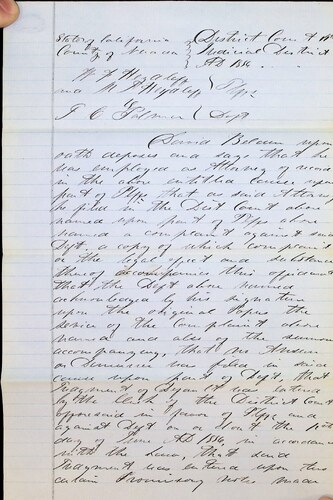 State of California } District Court
County of Nevada } Judicial District
AD 1856
W. F.
and M. F. } Plffs
vs
T. C. Palmer } Deft
David Belden upon
oath deposes and says that he
was employed as Attorney of record
in the above entitled cause upon
part of Plffs that as said Attorney
he filed in the Dist Court above
named upon part of Plffs above
named a complaint against said
Deft. a copy of which complaint
or the legal effect and substance
thereof accompanies this affidavit
that the Deft above named
acknowledged by his signature
upon the original papers the
service of the Complaint above
named and also of the summons
accompanying, that no Answer
or Demurrer was filed in said
cause upon part of Deft, that
Judgment was entered
by the Clerk of the District Court
aforesaid in favor of Plffs and
against Deft on or about the
day of June AD 1856 in accordance
with the law, that said
Judgment was entered upon
certain Promissory notes made